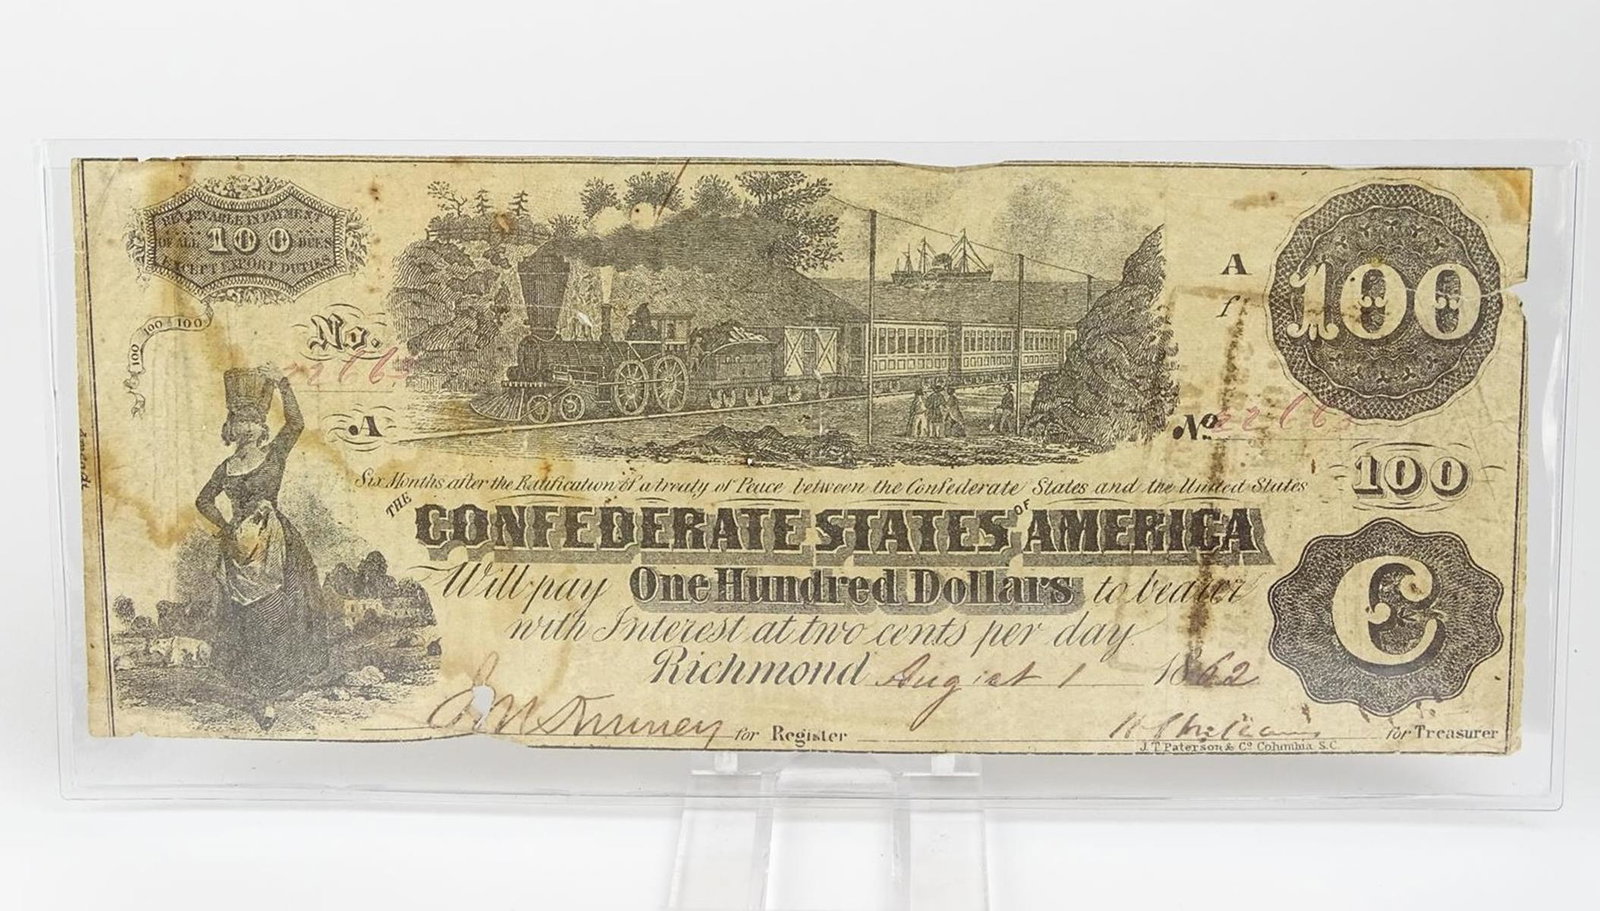 RECEIVABLE IN PAYMENT
OF ALL 100 DUES
EXCEPT EXPORT DUTIES
100 100
100
No.
A
A
100
No
100
Six Months after the Ratification of a treaty of Peace between the Confederate States and the United States
THE CONFEDERATE STATES OF AMERICA
Will pay One Hundred Dollars to bearer
with Interest at two cents per day
C
Richmond August 1 1862
for Register
for Treasurer
J.T. Paterson & Co Columbia S.C.